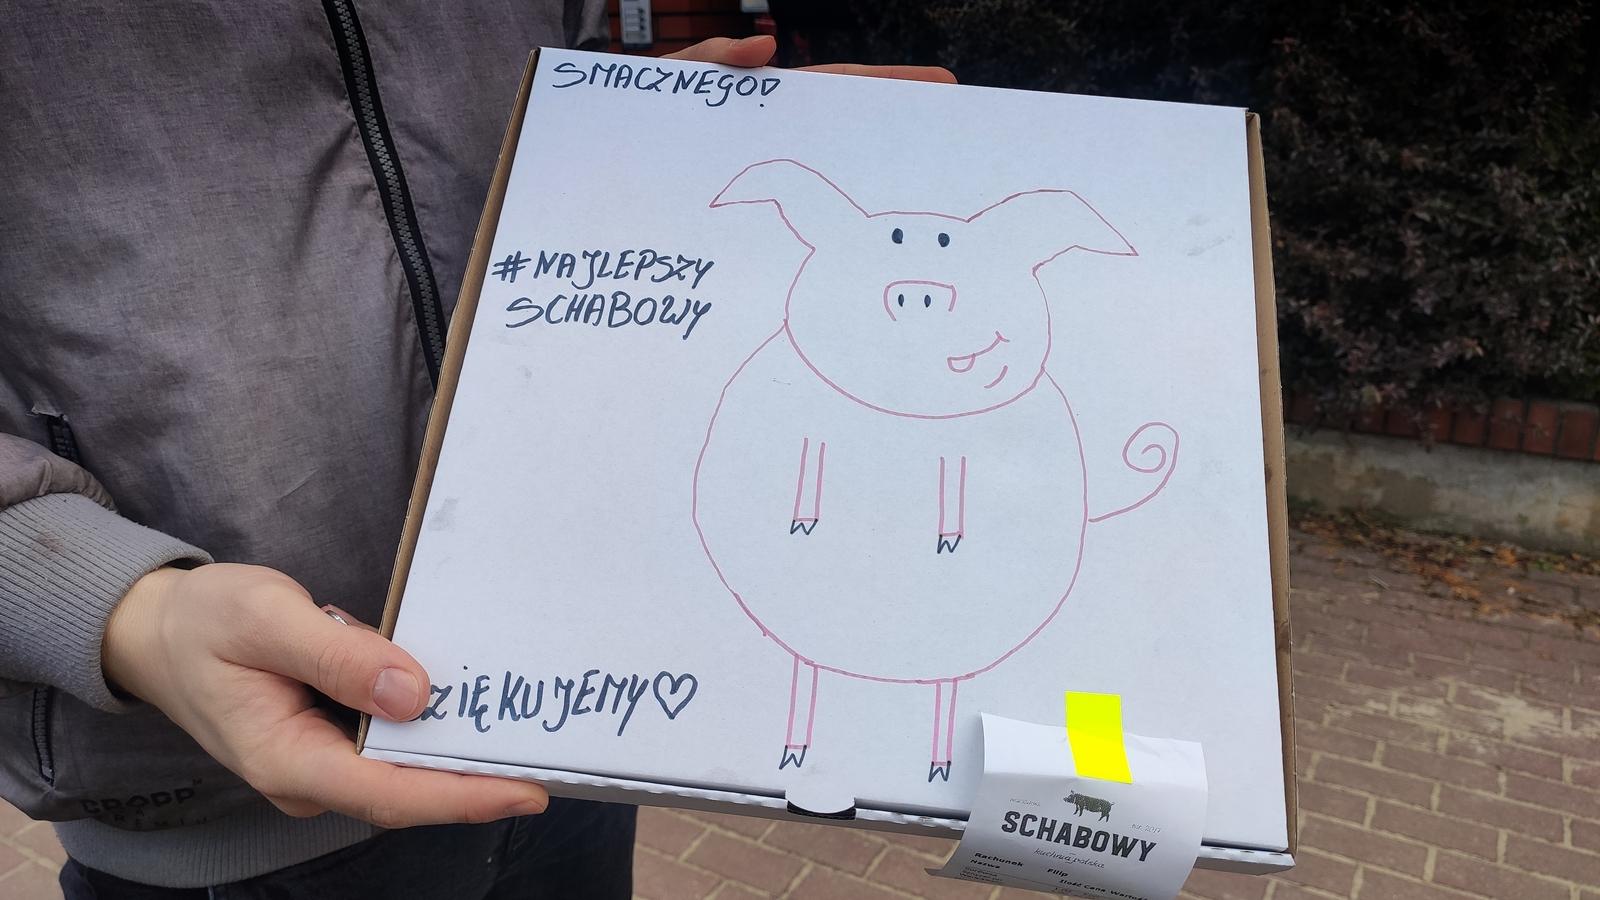 SMACZNEGO!
#NAJLEPSZY
SCHABOWY
ZIĘKUJEMY♡
EST. 2017
SCHABOWY
kuchnia polska
Rachunek
Filip
Nazwa
Ilość Cena Wartość
CROPP